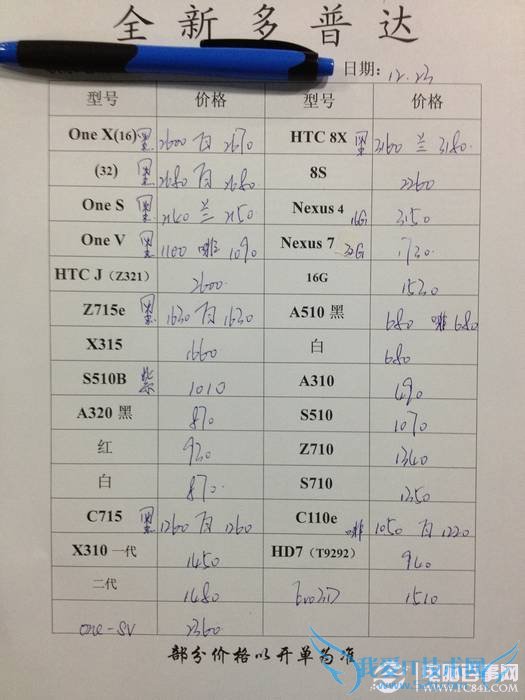 全新多普达
日期: 12.23
型号 价格 型号 价格
One X(16) 黑 2600 白 2670 HTC 8X 黑 3160 兰 3180
(32) 黑 2680 白 2680 8S 2260
One S 黑 2140 兰 2150 Nexus 4 16G 3150
One V 黑 1100 啡 1090 Nexus 7 32G 1730
HTC J (Z321) 2600 16G 1530
Z715e 黑 1630 白 1630 A510 黑 680 啡 680
X315 1660 白 680
S510B 紫 1010 A310 490
A320 黑 870 S510 1070
红 930 Z710 1340
白 870 S710 1350
C715 黑 1260 白 1260 C110e 啡 1050 白 1220
X310 一代 1450 HD7 (T9292) 940
二代 1480 Evo3D 1510
one-SV 2360
部分价格以开单为准